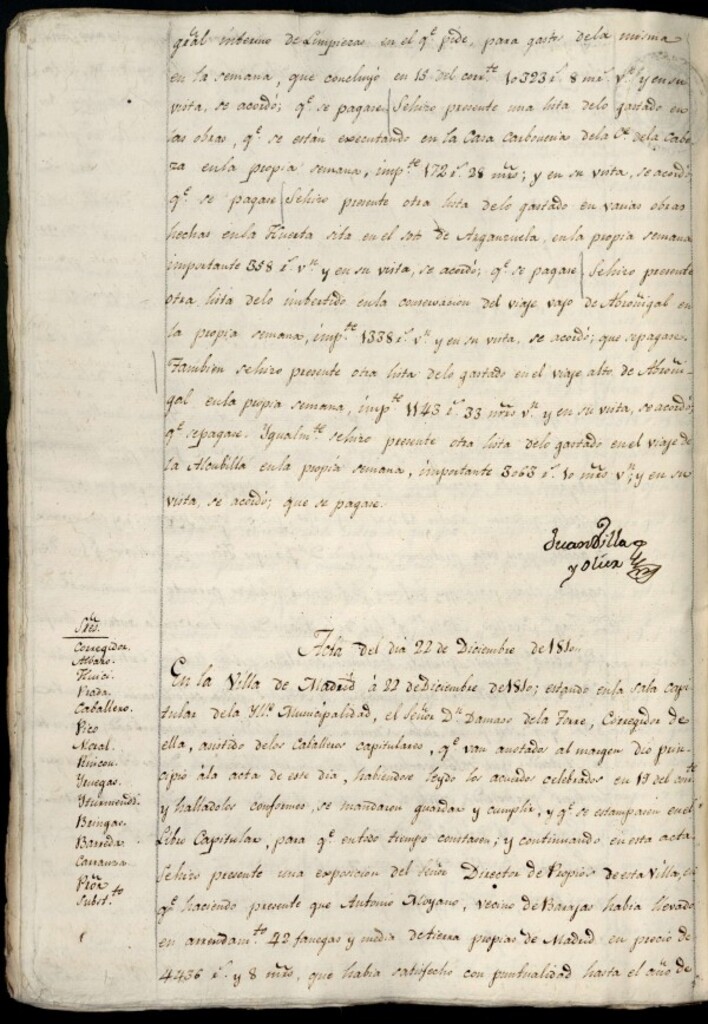 gral interino de Limpiezas en el q.e pide, para gastos dela misma
en la semana, que concluyó en 15 del corr.te 10323 r.s 8 mrs. v.n y en su
vista, se acordó; q.e se pagase Se hizo presente una lista delo gastado en
las obras, q.e se están executando en la Casa Carboneria dela C.e dela Cabe
za enla propia semana, imp.te 172 r.s 28 mrs; y en su vista, se acordó
q.e se pagase Se hizo presente otra lista delo gastado en varias obras
hechas enla Huerta sita en el soto de Arganzuela, enla propia semana
importante 358 r.s v.n y en su vista, se acordó; q.e se pagase Se hizo presente
otra lista delo imbertido enla conservacion del viaje vajo de Abroñigal en
la propia semana, imp.te 1338 r.s v.n y en su vista, se acordó; que sepagase.
Tambien sehizo presente otra lista delo gastado en el viaje alto de Abroñi-
gal enla propia semana, imp.te 1143 r.s 33 mrs v.n y en su vista, se acordó
q.e sepagase. Ygualm.te sehizo presente otra lista delo gastado en el viaje de
la Alcubilla enla propia semana, importante 3063 r.s 10 mrs v.n; y en su
vista, se acordó; que se pagase.
Juan Villa
y Olier
Acta del dia 22 de Diciembre de 1810.
S.res
Corregidor.
Albaro.
Huici.
Prada.
Caballero.
Pico
Noral.
Rincon.
Yruegas.
Yturmendi.
Bringas.
Barreda.
Carranza.
Pror
Subst.to
En la Villa de Madrid á 22 de Diciembre de 1810; estando enla sala capi-
tular dela Yll.e Municipalidad, el Señor D.n Damaso dela Torre, Corregidor de
ella, asistido delos Caballeros capitulares, q.e van anotados al margen, dio prin-
cipio ála acta de este dia, habiendose leydo los acuerdos celebrados en 19 del corr.te
y halladolos conformes, se mandaron guardar y cumplir, y q.e se estamparen en el
Libro Capitular, para q.e entodo tiempo constasen; y continuando en esta acta
Sehizo presente una exposicion del Señor Director de Propios de esta Villa, en
q.e haciendo presente que Antonio Moyano, vecino de Barajas habia llevado
en arrendam.to 42 fanegas y media de tierra propias de Madrid en precio de
4436 r.s y 8 mrs, que habia satisfecho con puntualidad hasta el año de